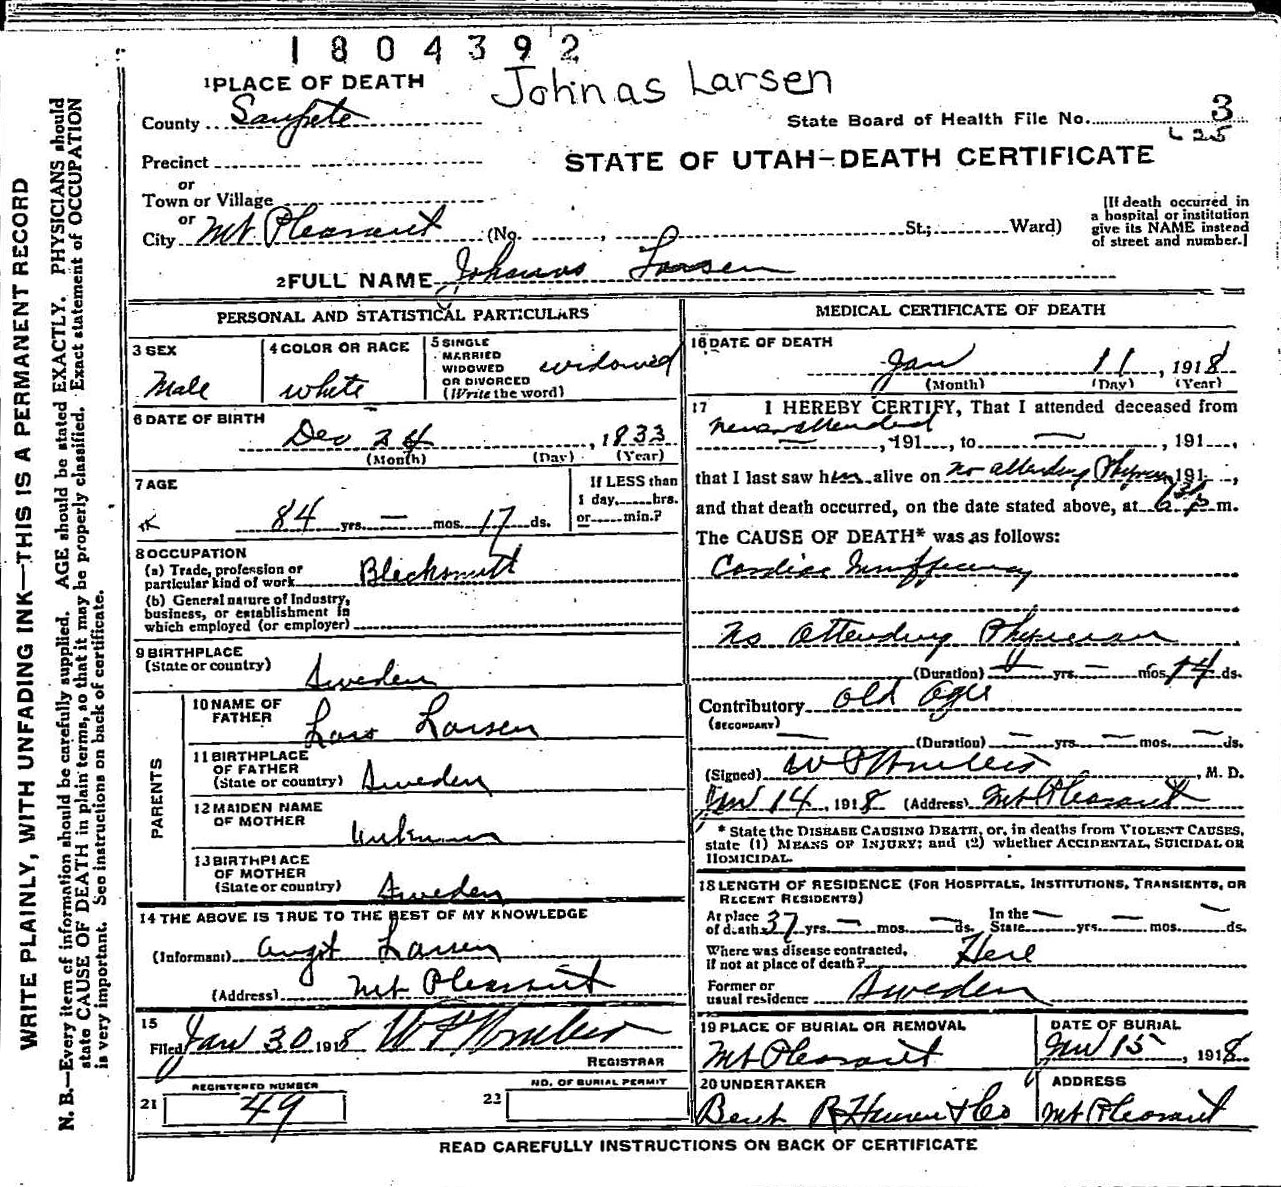 1804392
Johnas Larsen
1 PLACE OF DEATH
County Sanpete
State Board of Health File No. 3
Precinct
STATE OF UTAH—DEATH CERTIFICATE
or
Town or Village
or
City Mt Pleasant (No. , St.; Ward)
[If death occurred in
a hospital or institution
give its NAME instead
of street and number.]
2 FULL NAME Johanas Larsen
PERSONAL AND STATISTICAL PARTICULARS
3 SEX
Male
4 COLOR OR RACE
White
5 SINGLE
MARRIED
WIDOWED
OR DIVORCED
(Write the word)
widowed
6 DATE OF BIRTH
Dec 24, 1833
(Month) (Day) (Year)
7 AGE
84 yrs. — mos. 17 ds.
If LESS than
1 day, hrs.
or min.?
8 OCCUPATION
(a) Trade, profession or
particular kind of work Blacksmith
(b) General nature of Industry,
business, or establishment in
which employed (or employer)
9 BIRTHPLACE
(State or country) Sweden
PARENTS
10 NAME OF
FATHER Lars Larsen
11 BIRTHPLACE
OF FATHER
(State or country) Sweden
12 MAIDEN NAME
OF MOTHER Unknown
13 BIRTHPLACE
OF MOTHER
(State or country) Sweden
14 THE ABOVE IS TRUE TO THE BEST OF MY KNOWLEDGE
(Informant) August Larsen
(Address) Mt Pleasant
15
Filed Jan 30 1918
REGISTRAR
21 REGISTERED NUMBER 49
22 NO. OF BURIAL PERMIT
MEDICAL CERTIFICATE OF DEATH
16 DATE OF DEATH
Jan 11, 1918
(Month) (Day) (Year)
17 I HEREBY CERTIFY, That I attended deceased from
never attended
—, 191 , to —, 191 ,
that I last saw him alive on no attending Physician, 191 ,
and that death occurred, on the date stated above, at 6 30 p m.
The CAUSE OF DEATH* was as follows:
Cardiac Insufficiency
No Attending Physician
(Duration) — yrs. — mos. 14 ds.
Contributory Old Age
(SECONDARY)
(Duration) — yrs. — mos. — ds.
(Signed) , M. D.
Jan 14, 1918 (Address) Mt Pleasant
* State the DISEASE CAUSING DEATH, or, in deaths from VIOLENT CAUSES,
state (1) MEANS OF INJURY; and (2) whether ACCIDENTAL, SUICIDAL OR
HOMICIDAL.
18 LENGTH OF RESIDENCE (FOR HOSPITALS, INSTITUTIONS, TRANSIENTS, OR
RECENT RESIDENTS)
At place
of death 37 yrs. — mos. — ds. In the
State — yrs. — mos. — ds.
Where was disease contracted,
if not at place of death? Here
Former or
usual residence Sweden
19 PLACE OF BURIAL OR REMOVAL
Mt Pleasant
DATE OF BURIAL
Jan 15, 1918
20 UNDERTAKER
R Hansen & Co
ADDRESS
Mt Pleasant
READ CAREFULLY INSTRUCTIONS ON BACK OF CERTIFICATE
WRITE PLAINLY, WITH UNFADING INK—THIS IS A PERMANENT RECORD
N. B.—Every item of information should be carefully supplied. AGE should be stated EXACTLY. PHYSICIANS should
state CAUSE OF DEATH in plain terms, so that it may be properly classified. Exact statement of OCCUPATION
is very important. See instructions on back of certificate.